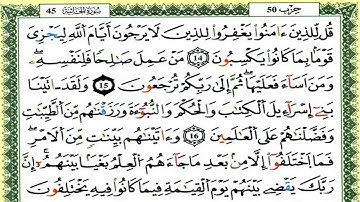 45 سُورَةُ الجَاثِيَة حِزْب 50
قُل لِّلَّذِينَ ءَامَنُوا۟ يَغْفِرُوا۟ لِلَّذِينَ لَا يَرْجُونَ أَيَّامَ ٱللَّهِ لِيَجْزِىَ
قَوْمًۢا بِمَا كَانُوا۟ يَكْسِبُونَ 14 مَنْ عَمِلَ صَٰلِحًا فَلِنَفْسِهِۦ
وَمَنْ أَسَآءَ فَعَلَيْهَا ثُمَّ إِلَىٰ رَبِّكُمْ تُرْجَعُونَ 15 وَلَقَدْ ءَاتَيْنَا
بَنِىٓ إِسْرَٰٓءِيلَ ٱلْكِتَٰبَ وَٱلْحُكْمَ وَٱلنُّبُوٓءَةَ وَرَزَقْنَٰهُم مِّنَ ٱلطَّيِّبَٰتِ
وَفَضَّلْنَٰهُمْ عَلَى ٱلْعَٰلَمِينَ 16 وَءَاتَيْنَٰهُم بَيِّنَٰتٍ مِّنَ ٱلْأَمْرِ
فَمَا ٱخْتَلَفُوٓا۟ إِلَّا مِنۢ بَعْدِ مَا جَآءَهُمُ ٱلْعِلْمُ بَغْيًۢا بَيْنَهُمْ إِنَّ
رَبَّكَ يَقْضِى بَيْنَهُمْ يَوْمَ ٱلْقِيَٰمَةِ فِيمَا كَانُوا۟ فِيهِ يَخْتَلِفُونَ